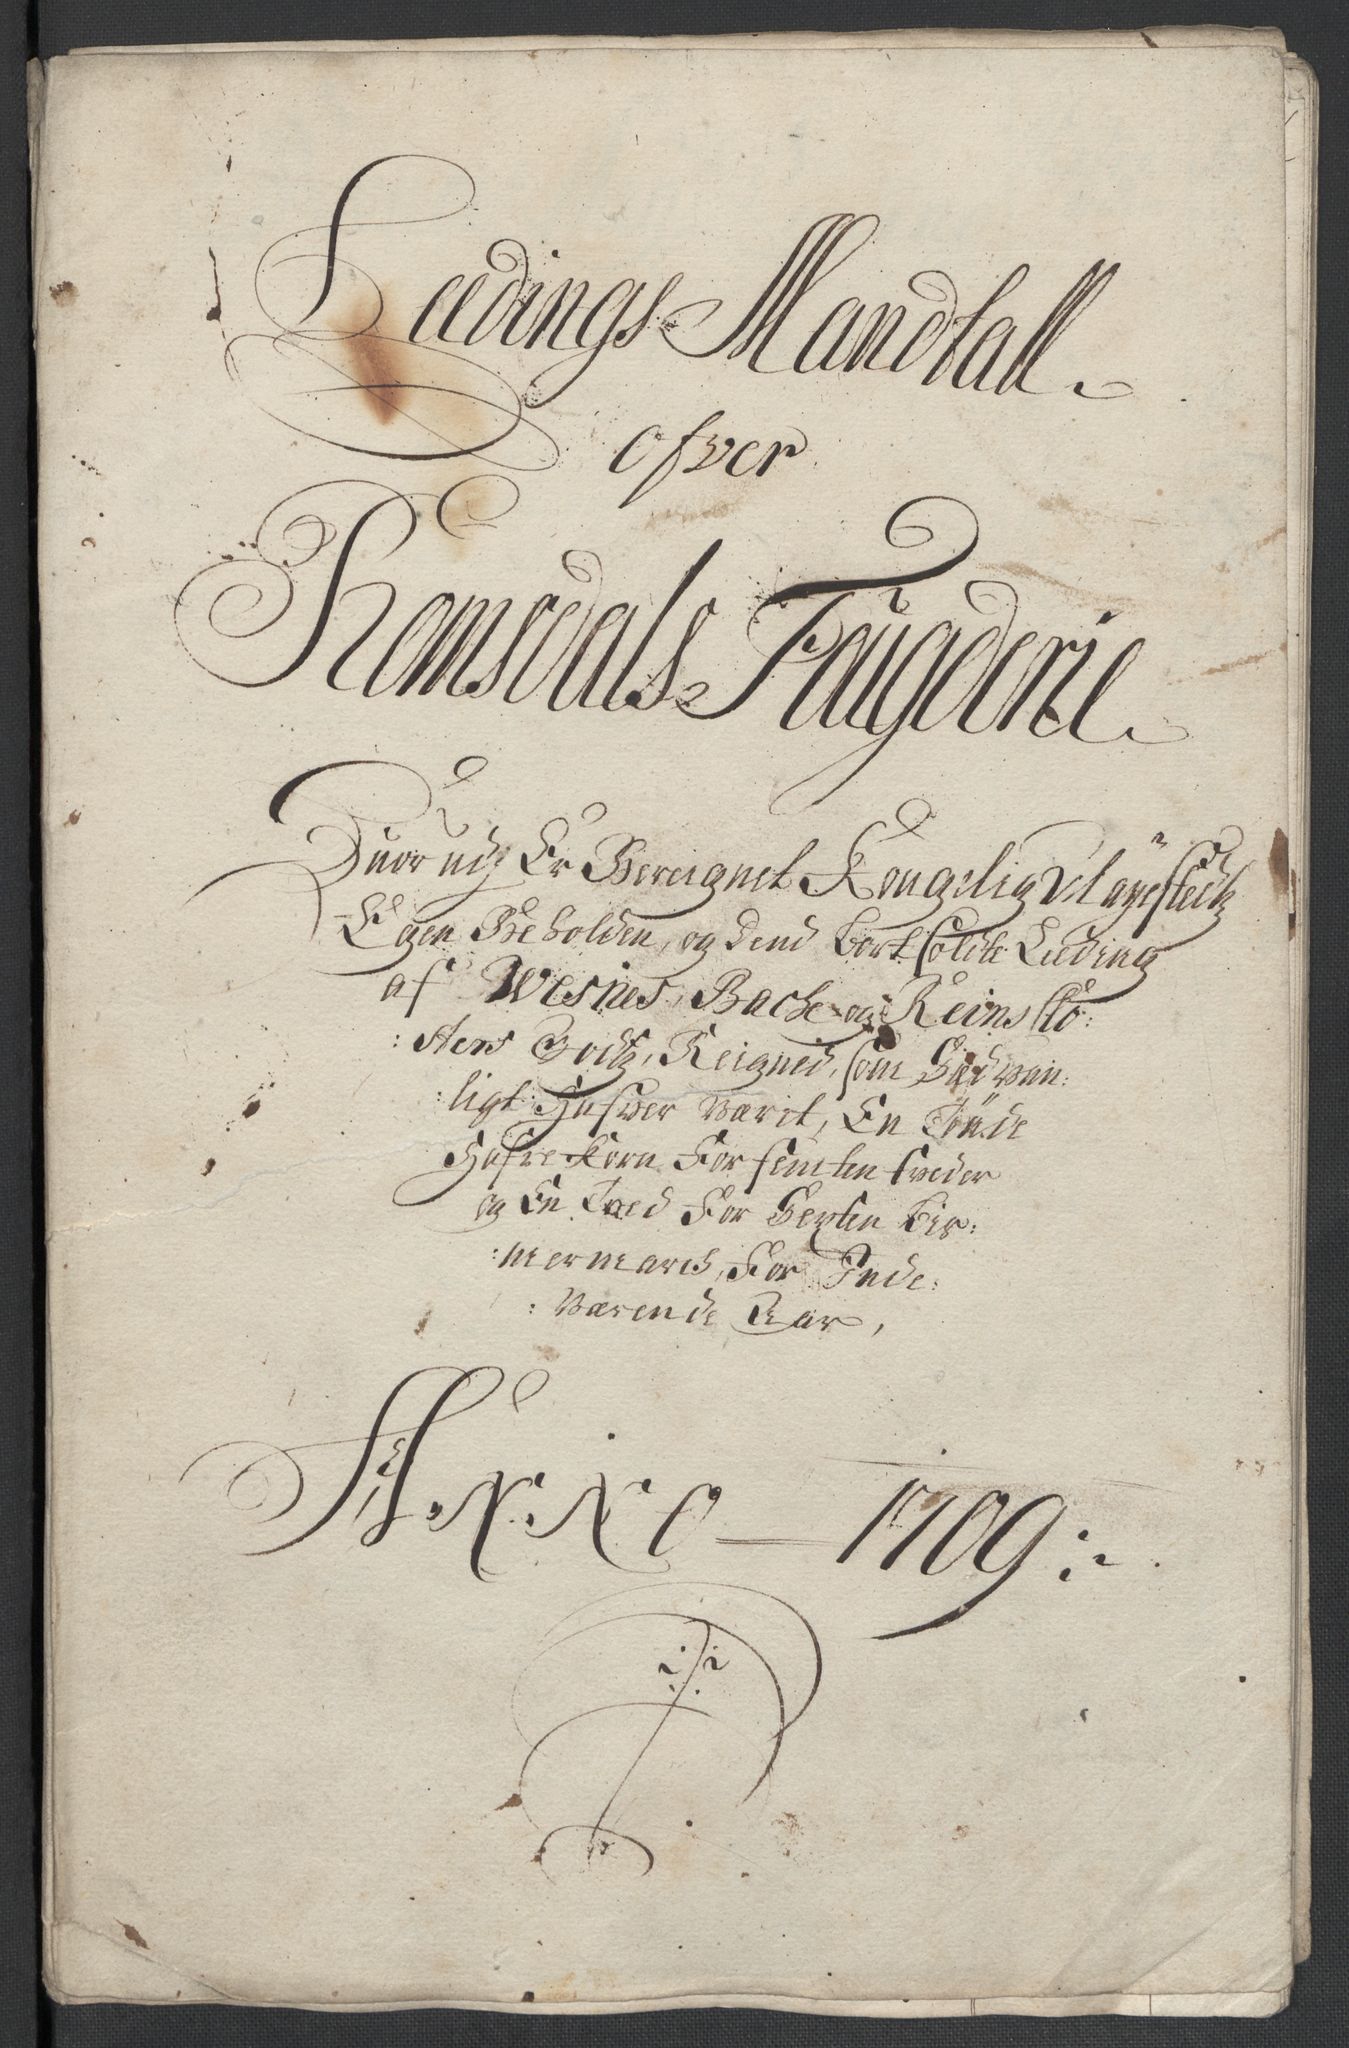 Leedings Mandtall
ofver
Romsdals Faugderie
Huorudj Er Bereignet Kongelig Mayestedtz
Egen Beholden, og dend bort soldte Leeding
af Wesnes, Bache og Reinsklo:
:sters Godtz, Reigned, som Sædvan:
:ligt Hafver Værit, En Tønde
Hafre Korn For femten Sveder
og En Sved For Sexten Bis:
:mermarck, For Inde:
:Værende Aar,
A.N.N.O — 1709: